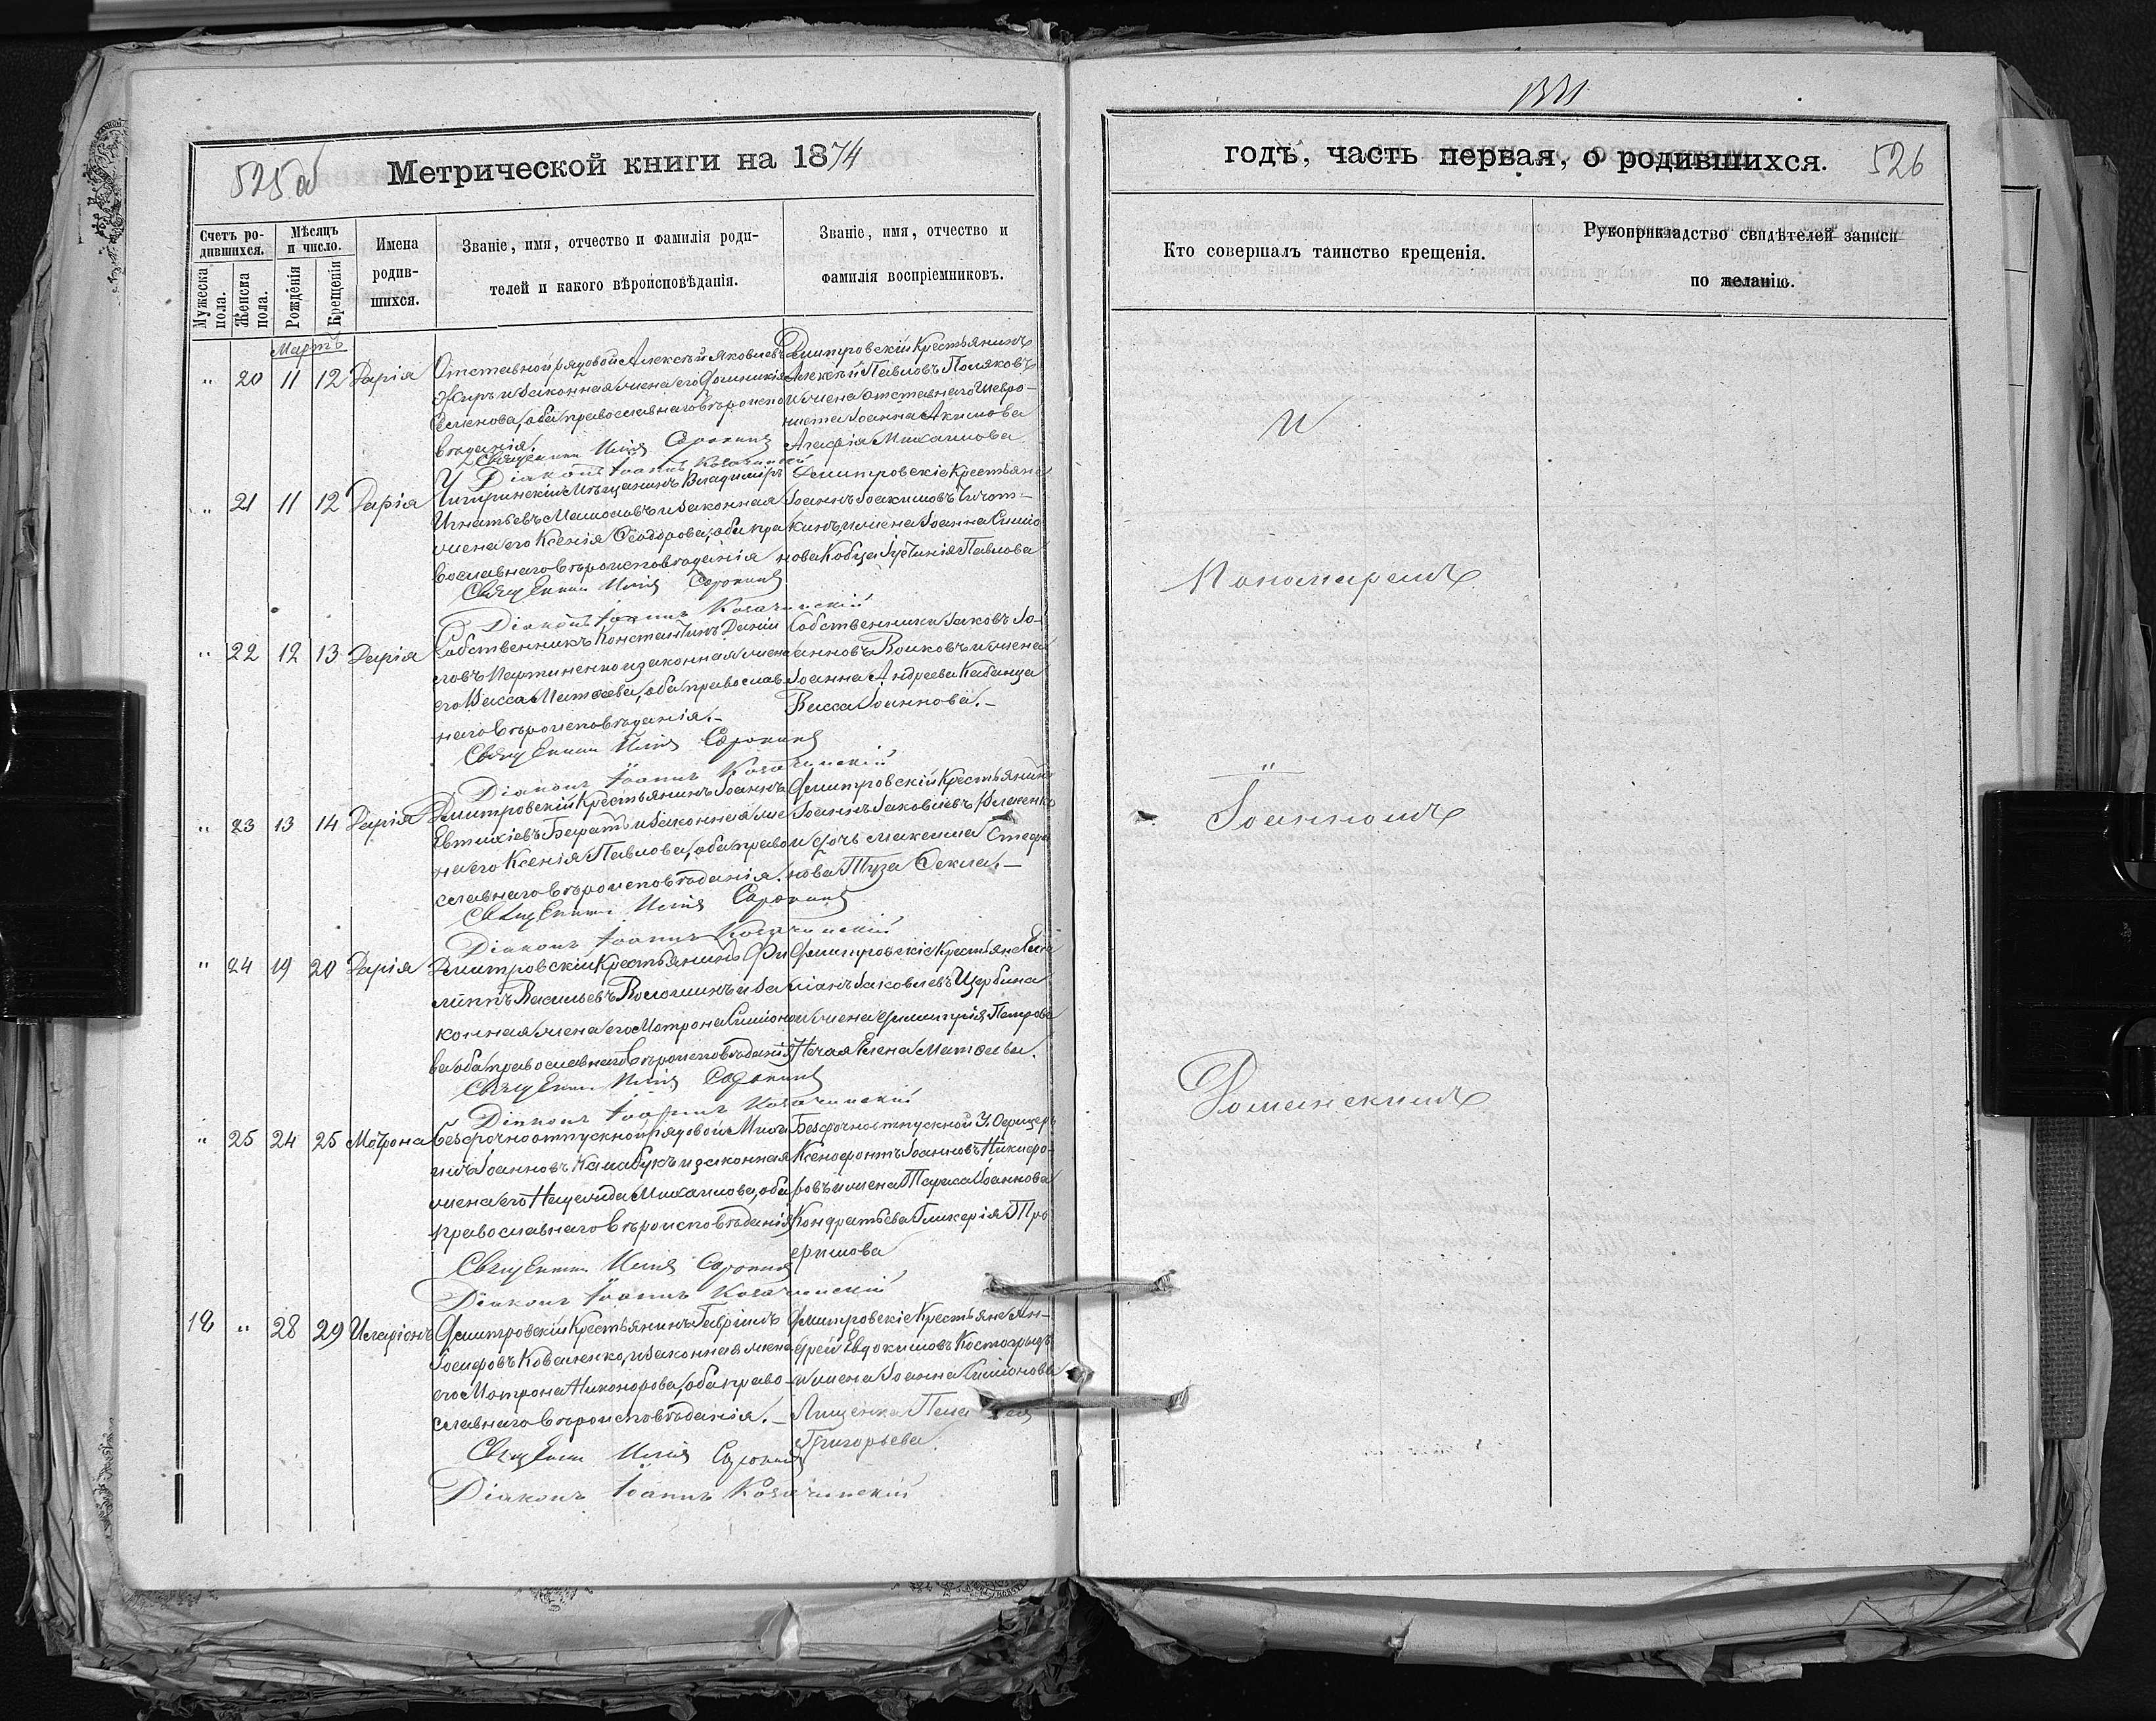 525 об
Метрической книги на 1874
Счетъ ро-
дившихся.
Мужеска пола.
Женска пола.
Мѣсяцъ
и число.
Рожденія
Крещенія
Имена
родив-
шихся.
Званіе, имя, отчество и фамилія роди-
телей и какого вѣроисповѣданія.
Званіе, имя, отчество и
фамилія воспріемниковъ.
Мартъ
" 20 11 12 Дарія
Отставной рядовой Алексѣй Яковлевъ
и законная жена его
Семенова, оба православнаго вѣроиспо
вѣданія.
Священникъ Илія Сорокинъ
Діаконъ Іоаннъ Козачинскій
Дмитровскій Крестьянинъ
Алексѣй Павловъ Поляковъ
и жена отставнаго Шевро-
ниста Іоанна Акимова
Агафія Михаилова
" 21 11 12 Дарія
Чигиринскій Мѣщанинъ Владиміръ
Игнатьевъ и законная
жена его Ксенія Ѳеодорова, оба пра
вославнаго вѣроисповѣданія
Священникъ Илія Сорокинъ
Діаконъ Іоаннъ Козачинскій
Дмитровскіе Крестьяне
Іоаннъ Іоакимовъ
кинъ, и жена Іоанна Симо
нова Кобца Іустинія Павлова
" 22 12 13 Дарія
Собственникъ Константинъ Даніи
ловъ Мартиненко и законная жена
его Васса Матѳеева, оба православ
наго вѣроисповѣданія.-
Священникъ Илія Сорокинъ
Діаконъ Іоаннъ Козачинскій
Собственники Іаковъ Іо-
анновъ Волковъ и жена
Іоанна Андреева Кабанца
Васса Іоаннова.-
" 23 13 14 Дарія
Дмитровскій Крестьянинъ Іоаннъ
Евтихіевъ и законная же
на его Ксенія Павлова, оба право
славнаго вѣроисповѣданія.
Священникъ Илія Сорокинъ
Діаконъ Іоаннъ Козачинскій
Дмитровскій Крестьянинъ
Іоаннъ Іаковлевъ
и дочь Максима Стефа
нова Туза Ѳекла.-
" 24 19 20 Дарія
Дмитровскій Крестьянинъ Фи
липпъ Васильевъ Волошинъ и за
конная жена его Мотрона Симіоно
ва оба православнаго вѣроисповѣданія
Священникъ Илія Сорокинъ
Діаконъ Іоаннъ Козачинскій
Дмитровскіе Крестьяне
ліанъ Іаковлевъ Щербина
и жена Димитрія Петрова
Нечая Елена Матѳеева.
" 25 24 25 Мотрона
Безсрочноотпускной рядовой Миха
илъ Іоанновъ Калабукъ и законная
жена его Надежда Михаилова, оба
православнаго вѣроисповѣданія
Священникъ Илія Сорокинъ
Діаконъ Іоаннъ Козачинскій
Безсрочноотпускной У. Офицеръ
Ксенофонтъ Іоанновъ Никифо-
ровъ и жена Тараса Іоаннова
Кондратьева Гликерія Тро
фимова
18 " 28 29 Иларіонъ
Дмитровскій Крестьянинъ Гавріилъ
Іосифовъ Коваленко, и законная жена
его Мотрона Никонорова, оба право-
славнаго вѣроисповѣданія.-
Священникъ Илія Сорокинъ
Діаконъ Іоаннъ Козачинскій
Дмитровскіе Крестьяне Ан-
дрей Евдокимовъ Костогрызъ
и жена Іоанна Симіонова
Лищенка
Григорьева.
годъ, часть первая, о родившихся.
526
Кто совершалъ таинство крещенія.
Рукоприкладство свидѣтелей записи
по желанію.
И
Пономаремъ
Іоанномъ
Романскимъ